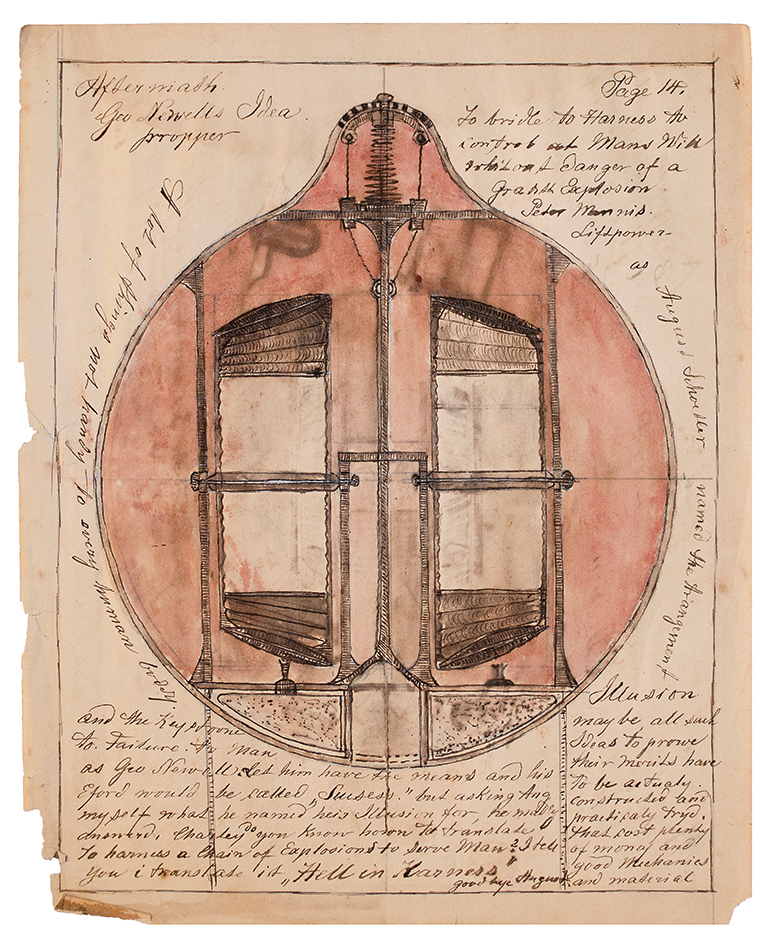 Aftermath.
Geo Newells Idea.
propper
Page 14.
To bridle to Harness to
controb at Mans Will
without danger of a
Explosion
Peter Mennis.
Liftpower
as August Schoetler named the Arangement
A lot of things not handy to every nawenty
and the Keystone
to Failure to Man
as Geo Newell. Let him have the means and his
Eford would be called „Sucsess." but asking Aug
myself what he named heis Illusion for, he
answerd, Charley do you know hown to translate
To harness a Chain of Explosions to serve Man? I tell
You i translate it „Hell in Harness"
good bye August.
Illusion
may be all such
Ideas to prowe
their merits have
to be actualy
constructed and
practicaly tryd.
that cost plenty
of money and
good Mechanics
and material